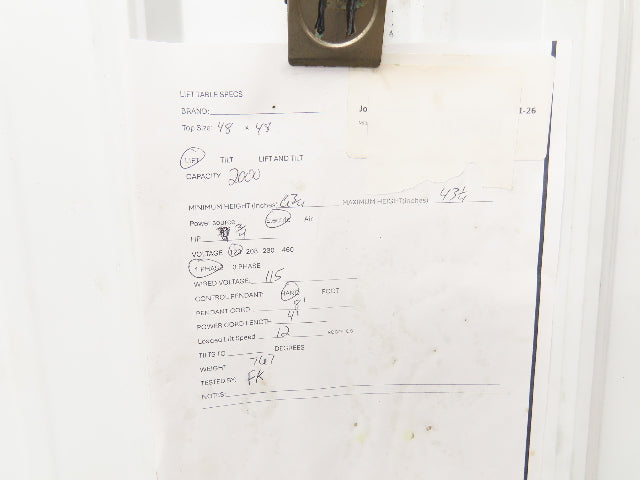 LIFT TABLE SPECS
BRAND:
Jo 1-26
Top Size: 48 x 48
LIFT TILT LIFT AND TILT
CAPACITY 2000
MINIMUM HEIGHT (Inches) MAXIMUM HEIGHT(Inches) 43 1/4
Power source Electric Air
HP 3/4
VOLTAGE 120 208 230 460
1 PHASE 3 PHASE
WIRED VOLTAGE: 115
CONTROL PENDANT: HAND FOOT
PENDANT CORD 8'
POWER CORD LENGTH 4'
Loaded Lift Speed 12
TILTS TO DEGREES
WEIGHT 767
TESTED BY: FK
NOTES: